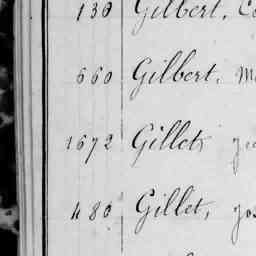 130 Gilbert, Co
660 Gilbert, M
1672 Gillet,
480 Gillet, Jos